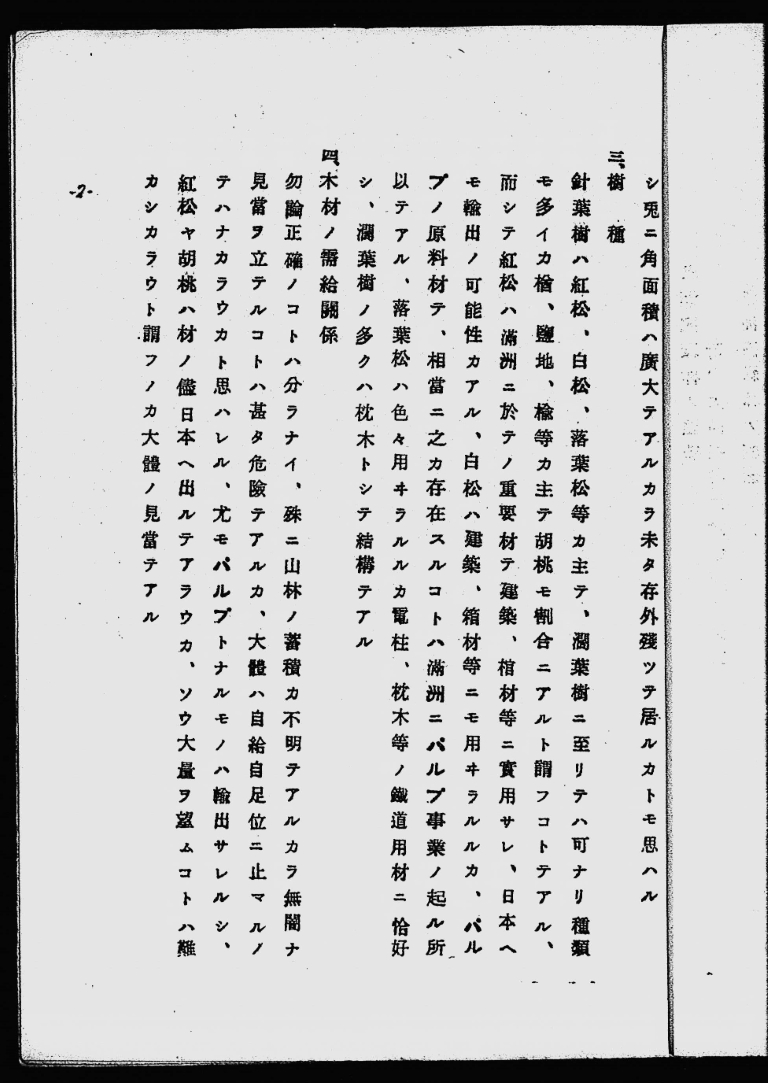 シ兎ニ角面積ハ廣大テアルカラ未タ存外殘ツテ居ルカトモ思ハル
三、樹種
針葉樹ハ紅松、白松、落葉松等カ主テ、濶葉樹ニ至リテハ可ナリ種類
モ多イカ楢、鹽地、楡等カ主テ胡桃モ割合ニアルト謂フコトテアル、
而シテ紅松ハ滿洲ニ於テノ重要材テ建築、棺材等ニ實用サレ、日本ヘ
モ輸出ノ可能性カアル、白松ハ建築、箱材等ニモ用ヰラルルカ、パル
プノ原料材テ、相當ニ之カ存在スルコトハ滿洲ニパルプ事業ノ起ル所
以テアル、落葉松ハ色々用ヰラルルカ電柱、枕木等ノ鐵道用材ニ恰好
シ、濶葉樹ノ多クハ枕木トシテ結構テアル
四、木材ノ需給關係
勿論正確ノコトハ分ラナイ、殊ニ山林ノ蓄積カ不明テアルカラ無闇ナ
見當ヲ立テルコトハ甚タ危險テアルカ、大體ハ自給自足位ニ止マルノ
テハナカラウカト思ハレル、尤モパルプトナルモノハ輸出サレルシ、
紅松ヤ胡桃ハ材ノ儘日本ヘ出ルテアラウカ、ソウ大量ヲ望ムコトハ難
カシカラウト謂フノカ大體ノ見當テアル
-2-